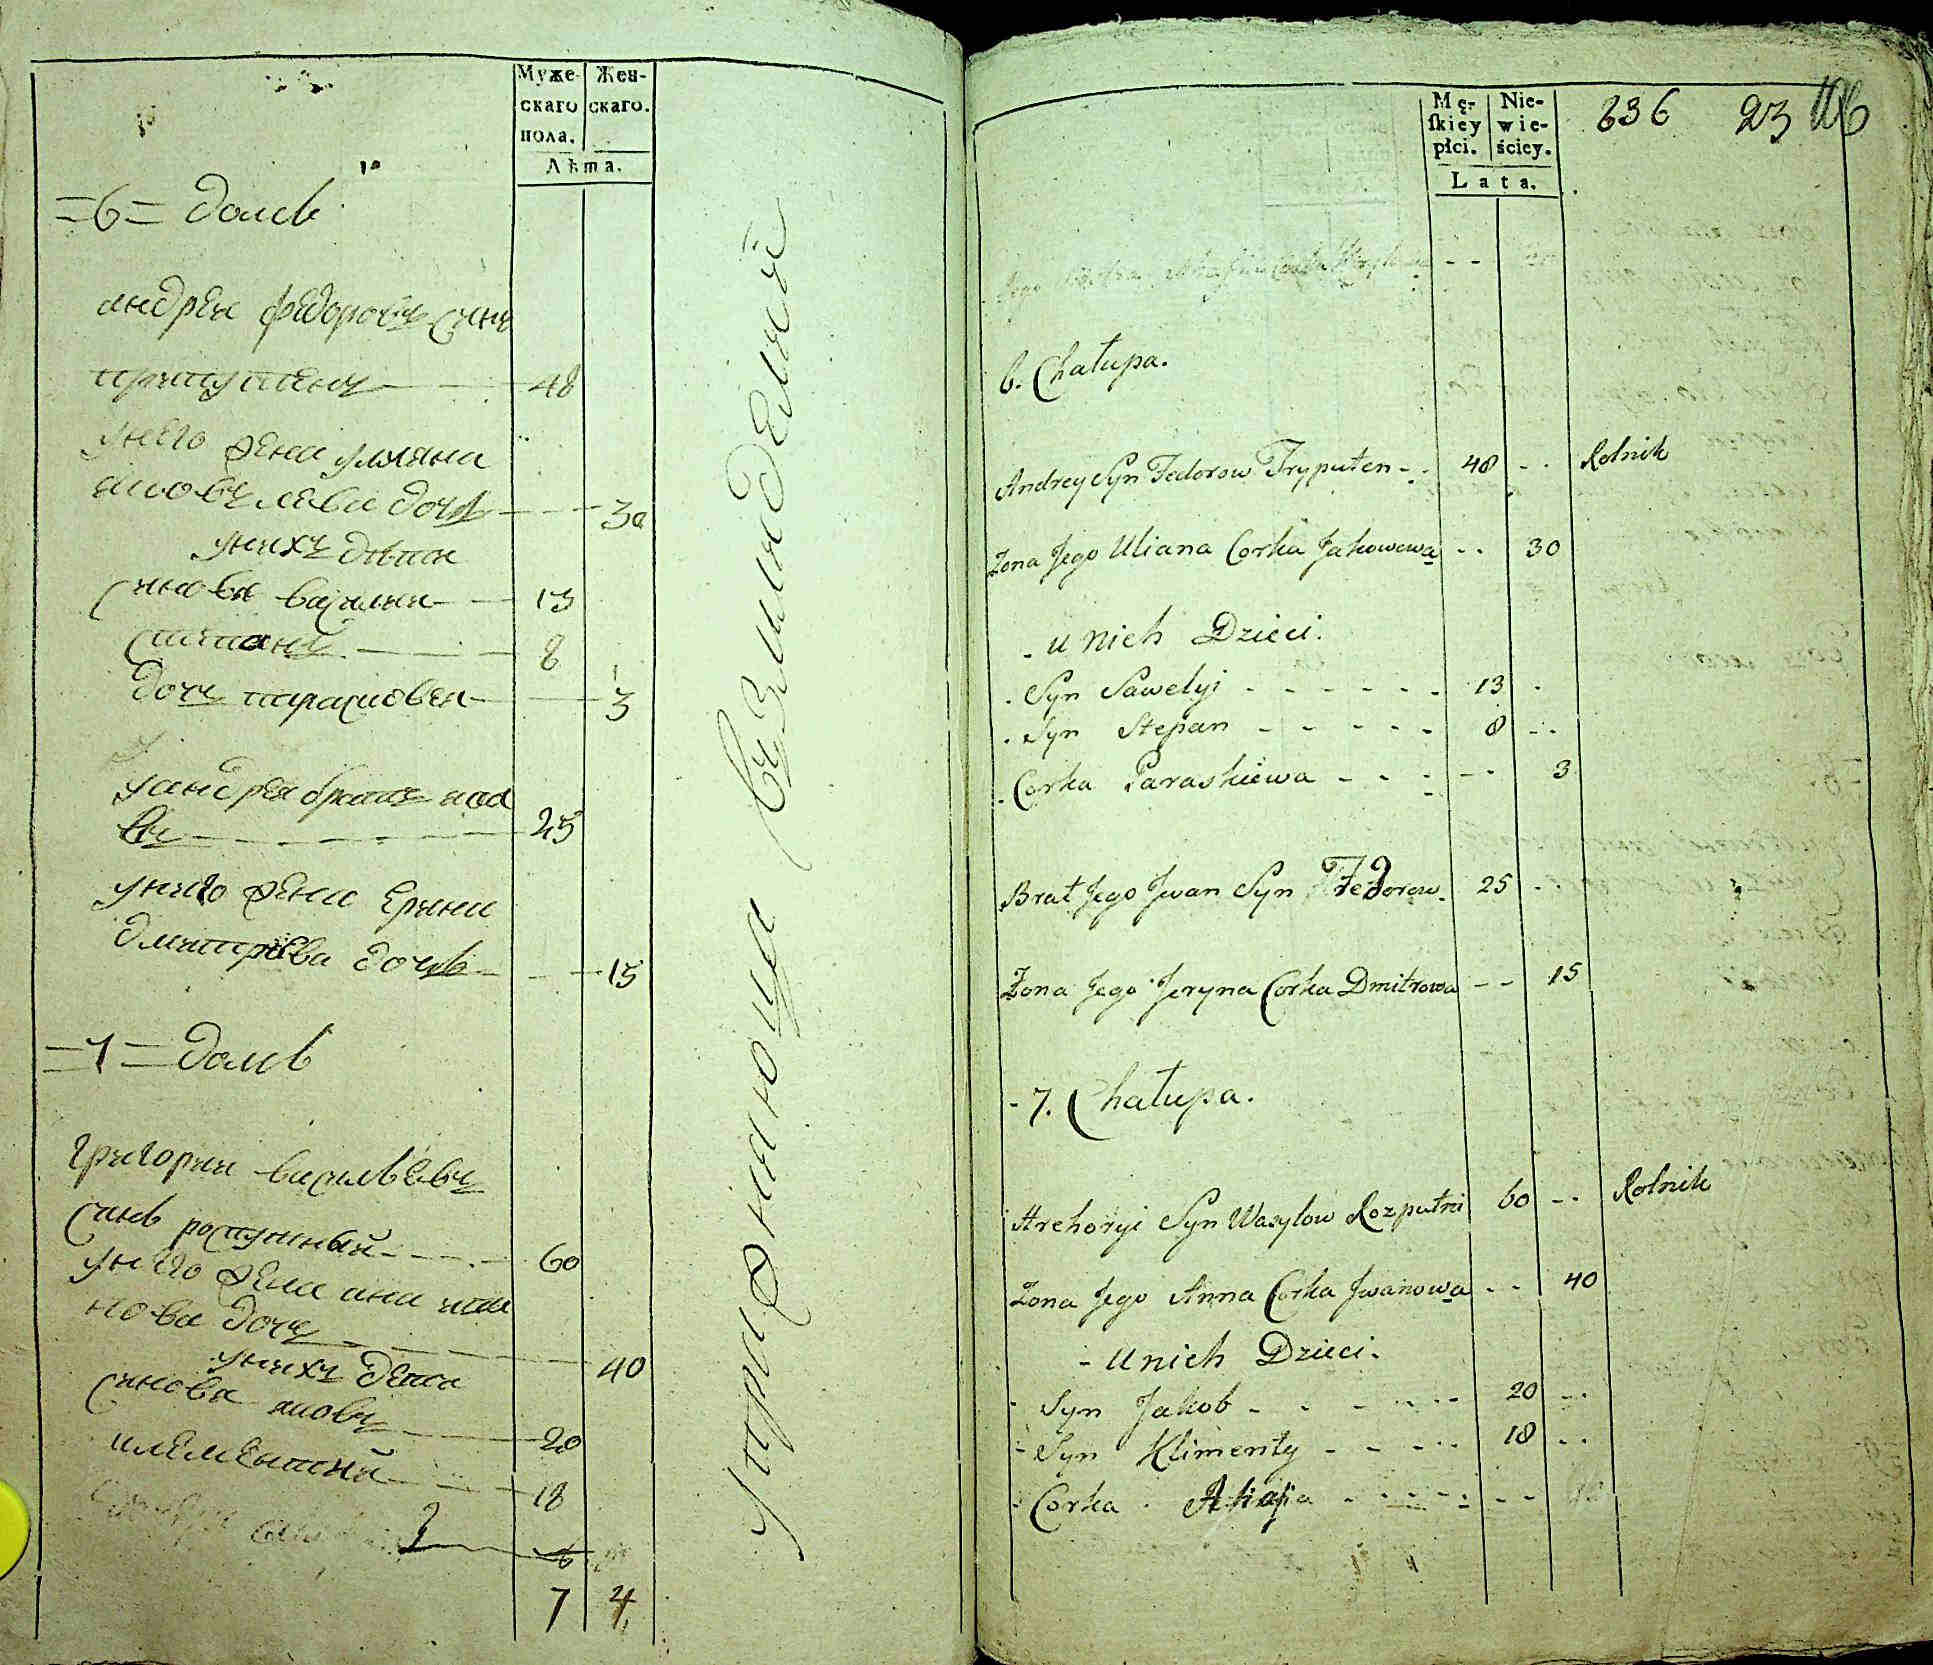 Муже-
скаго
пола.
Жен-
скаго.
Лѣта.
=6= домъ
андреи федоровъ синъ
трипутенъ 48
унего жена улляна
яковлева дочь 30
унихъ дѣти
синовя 13
степанъ 8
дочъ парасковея 3
уандрея братъ
25
унего жена Ерина
дмитрева дочъ 15
=7= домъ
григории василѣевъ
синъ роспутный 60
унего жена ана ива
нова дочъ 40
унихъ дети
синовя яковъ 20
клементий 18
7 4
упражняюца въземледелий
Mę-
skiey
płci.
Nie-
wie-
ściey.
Lata.
636 23
6. Chałupa.
Andrey Syn Fedorow Tryputen - - 48 - - Rolnik
Żona Jego Uliana Corka Jakowowa - - 30
- u nich Dzieci.
- Syn Sawelyi - - - - - - 13 -
- Syn Stepan - - - - - 8 - -
- Corka Paraskiewa - - - - - 3
Brat Jego Jwan Syn Fedorow. 25 - -
Żona Jego Jeryna Corka Dmitrowa - - 15
- 7. Chałupa.
Hrehoryi Syn Wasylow Rozputni 60 - - Rolnik
Żona Jego Anna Corka Jwanowa - - 40
- U nich Dzieci.
- Syn Jakob - - - - - - 20 - -
- Syn Klimenty - - - - - 18 - -
- Corka